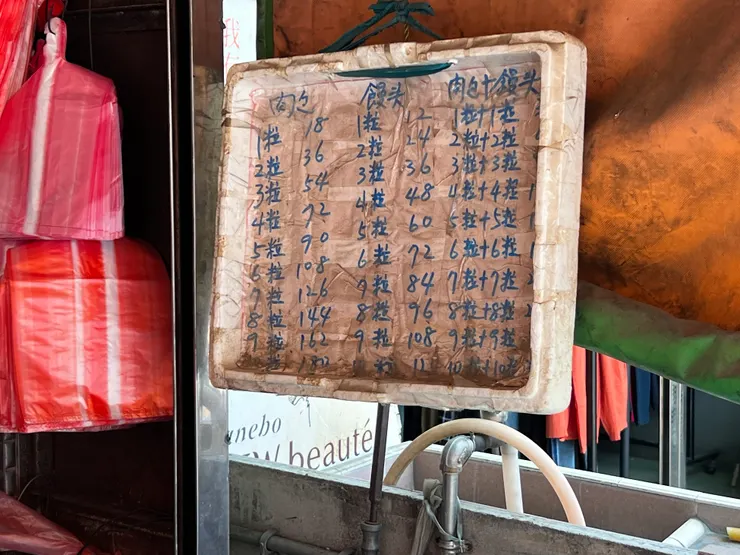 我
肉包 饅头 肉包+饅头
1粒 18 1粒 12 1粒+1粒
2粒 36 2粒 24 2粒+2粒
3粒 54 3粒 36 3粒+3粒
4粒 72 4粒 48 4粒+4粒 1
5粒 90 5粒 60 5粒+5粒 1
6粒 108 6粒 72 6粒+6粒 1
7粒 126 7粒 84 7粒+7粒 2
8粒 144 8粒 96 8粒+8粒 2
9粒 162 9粒 108 9粒+9粒
粒 180 粒 12 10粒+10粒
anebo
EW beauté